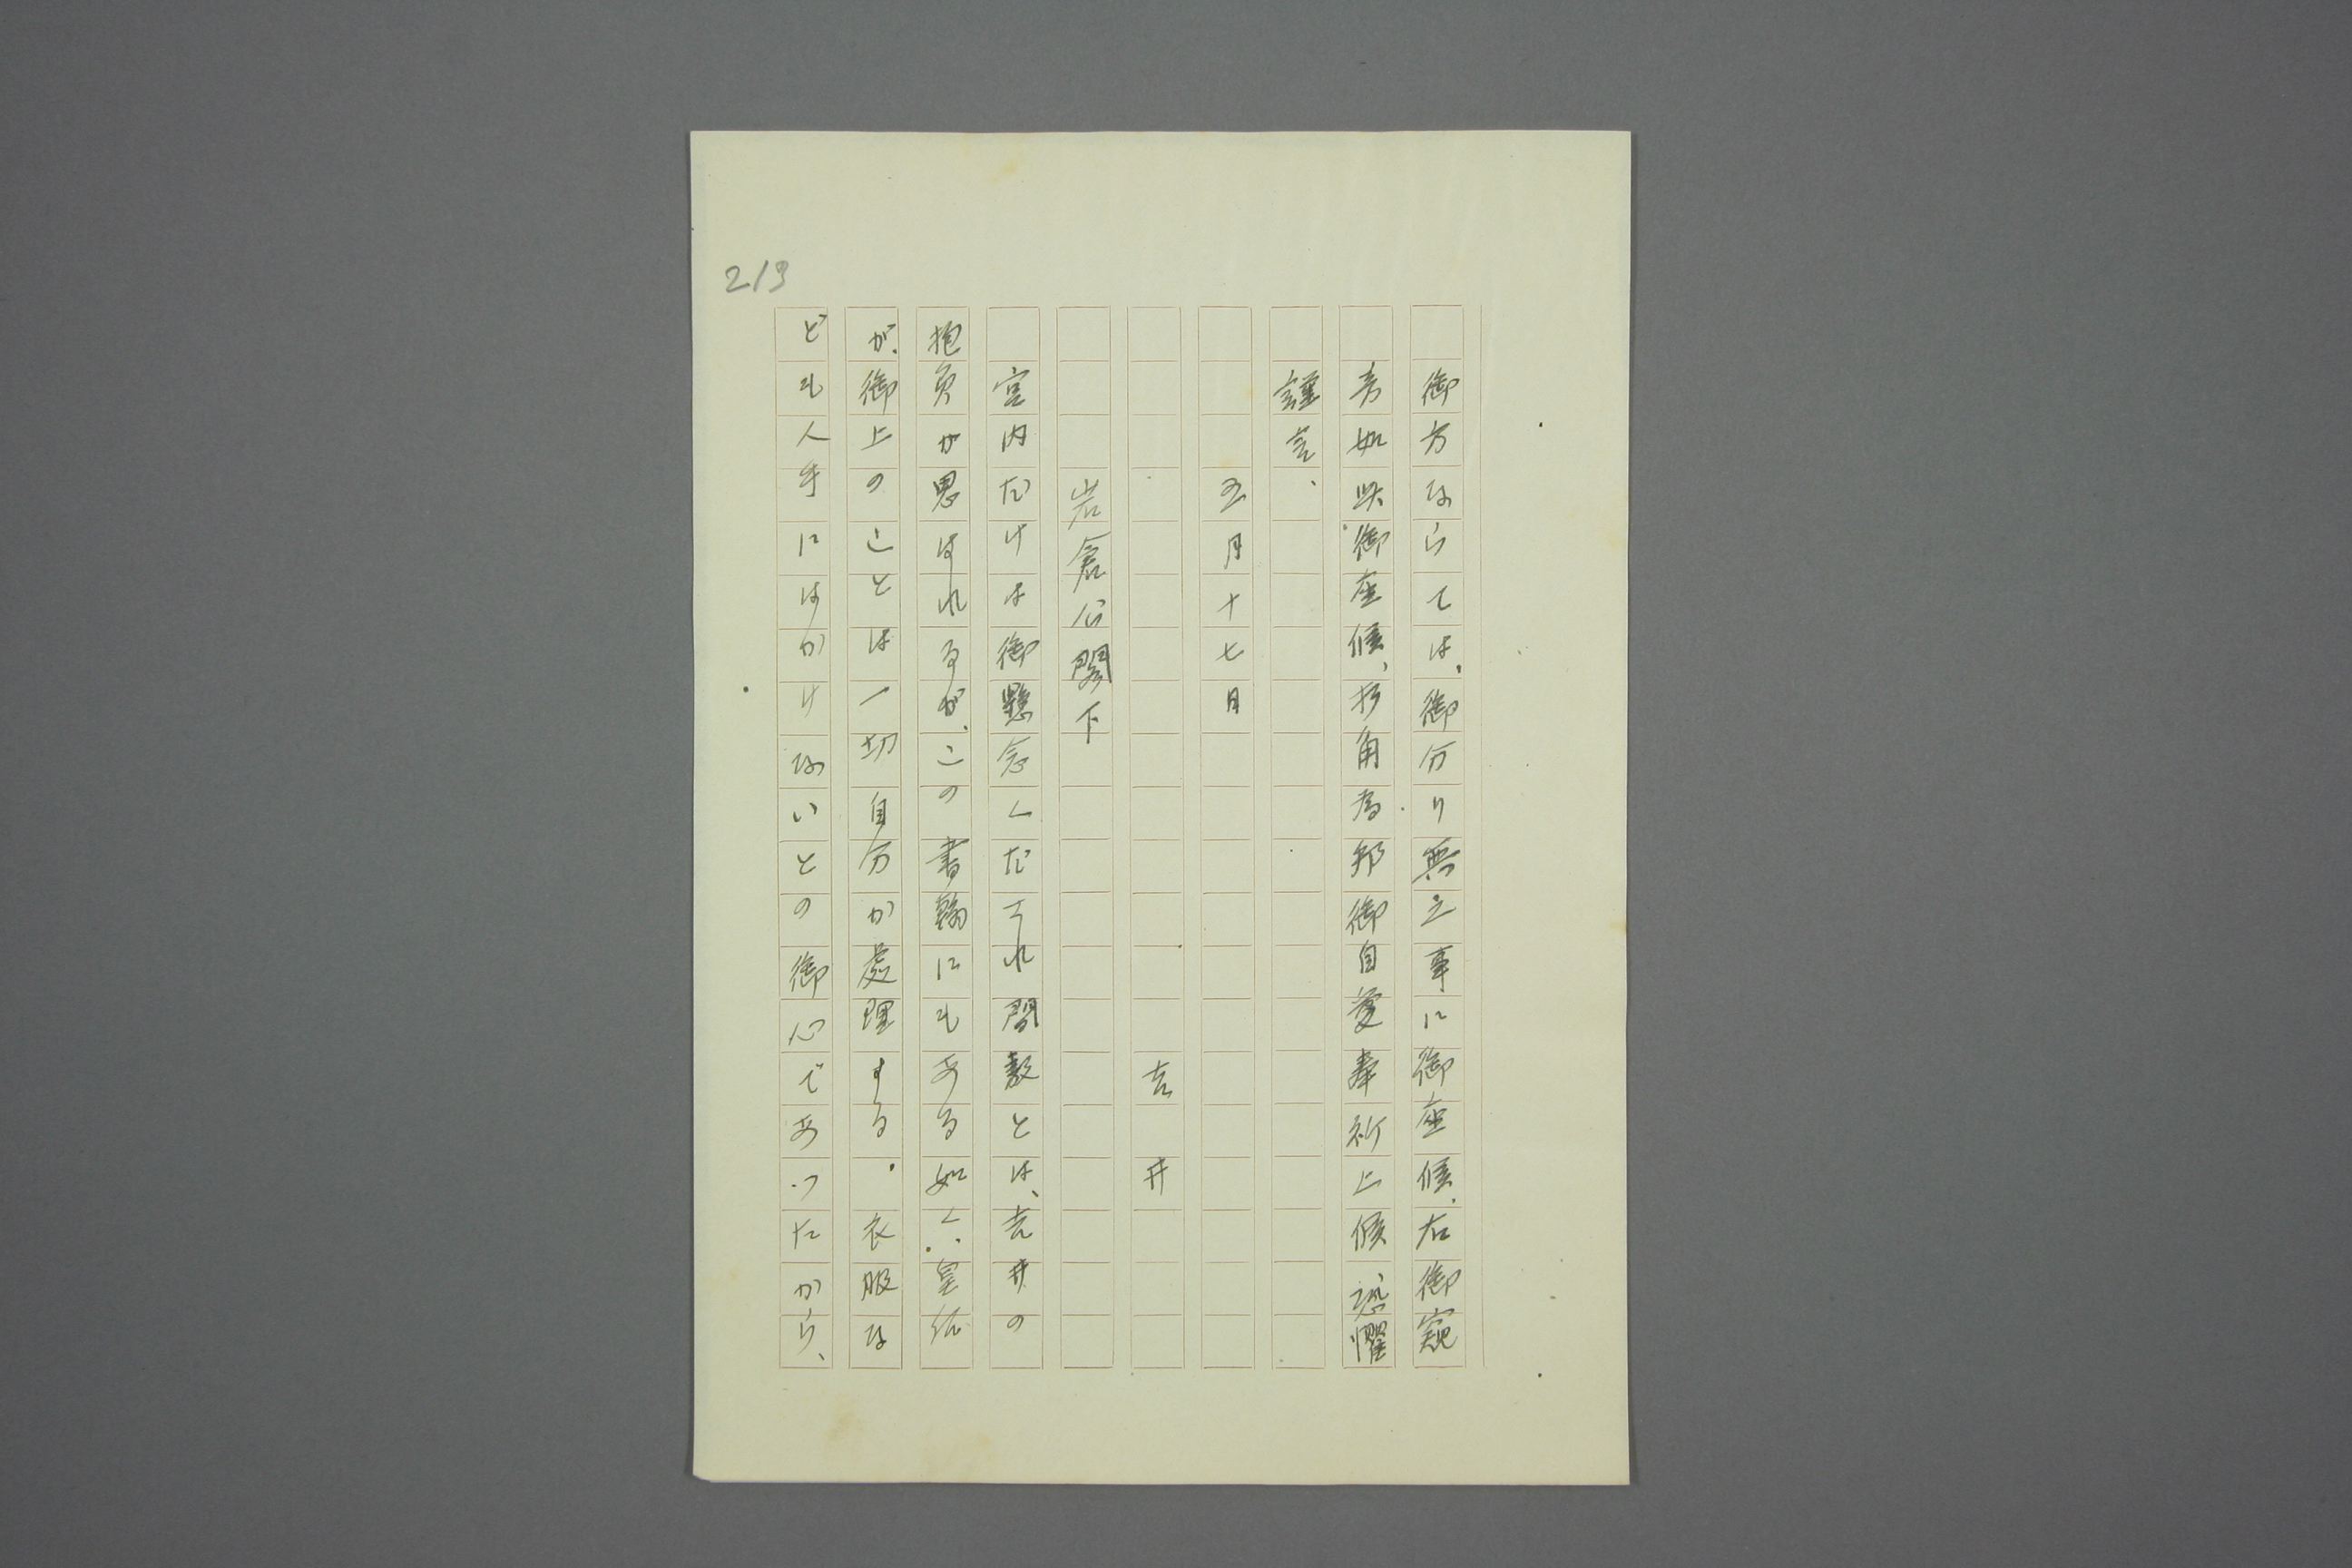 213
御方ならては、御分り無之事に御座候、右御窺
旁如此御座候、折角為邦御自愛奉祈上候 恐懼
謹言、
五月十七日
吉井
岩倉公閣下
宮内だけは御懸念くだされ間敷とは、吉井の
抱負が思はれるが、この書翰にもある如く、皇后
が、御上のことは一切自分か處理する。衣服な
ども人手にはかけないとの御心であつたから、